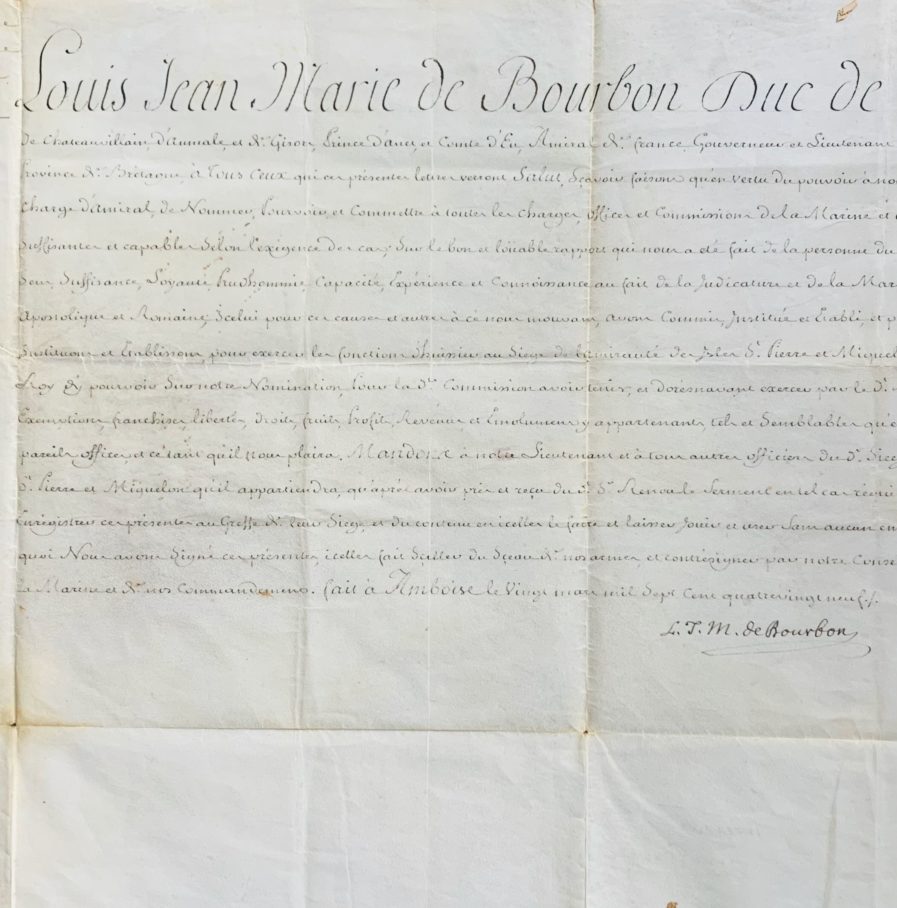 Louis Jean Marie de Bourbon Duc de
De Chateauvillain, d'Aumale, et de Gisors, Prince d'anet, et Comte d'Eu, Amiral de france, Gouverneur et Lieutenant
Province de Bretagne, à tous ceux qui ces présentes lettres verront Salut, Sçavoir faisons qu'en vertu du pouvoir à nou
charge d'amiral, de Nommer, Pourvoir, et Commettre à toutes les charges, offices et Commissions de la Marine et
Suffisantes et capables Selon l'exigence des cas; Sur le bon et loüable rapport qui nous a été fait de la personne du
Sens, Suffisance, Loyauté, Prudhommie, Capacité, Expérience et Connoissance au fait de la Judicature et de la Mar
Apostolique et Romaine; Icelui pour ces causes et autres à ce nous mouvans, avons Commis, Institué et Etabli, et p
Instituons et Etablissons, pour exercer les fonctions d'huissier au Siege de l'amirauté des Isles St. Pierre et Miquel
Roy d'y pourvoir Sur notre Nomination, Pour la de. Commission avoir tenir, et dorésnavant exercer par le d.
Exemptions, franchises, libertés, droits, fruits, Profits, Revenus et Emolumens y appartenants, tels et Semblables qu'
pareils offices, et ce tant qu'il nous plaira. Mandons à notre Lieutenant et à tous autres officiers du d. Sieg
St. Pierre et Miquelon qu'il appartiendra, qu'après avoir pris et reçu du d. S. Renou le Serment en tel cas requi
Enregistrer ces présentes au Greffe de leur Siege, et du contenu en icelles le faire et laisser Jouir et user Sans aucun
quoi Nous avons Signé ces présentes, icelles fait Sceller du Sceau de nos armes, et contresigner par notre Conse
La Marine et de nos Commandemens. fait à Amboise le Vingt mars mil Sept Cent quatrevingt neuf./.
L. J. M. de Bourbon